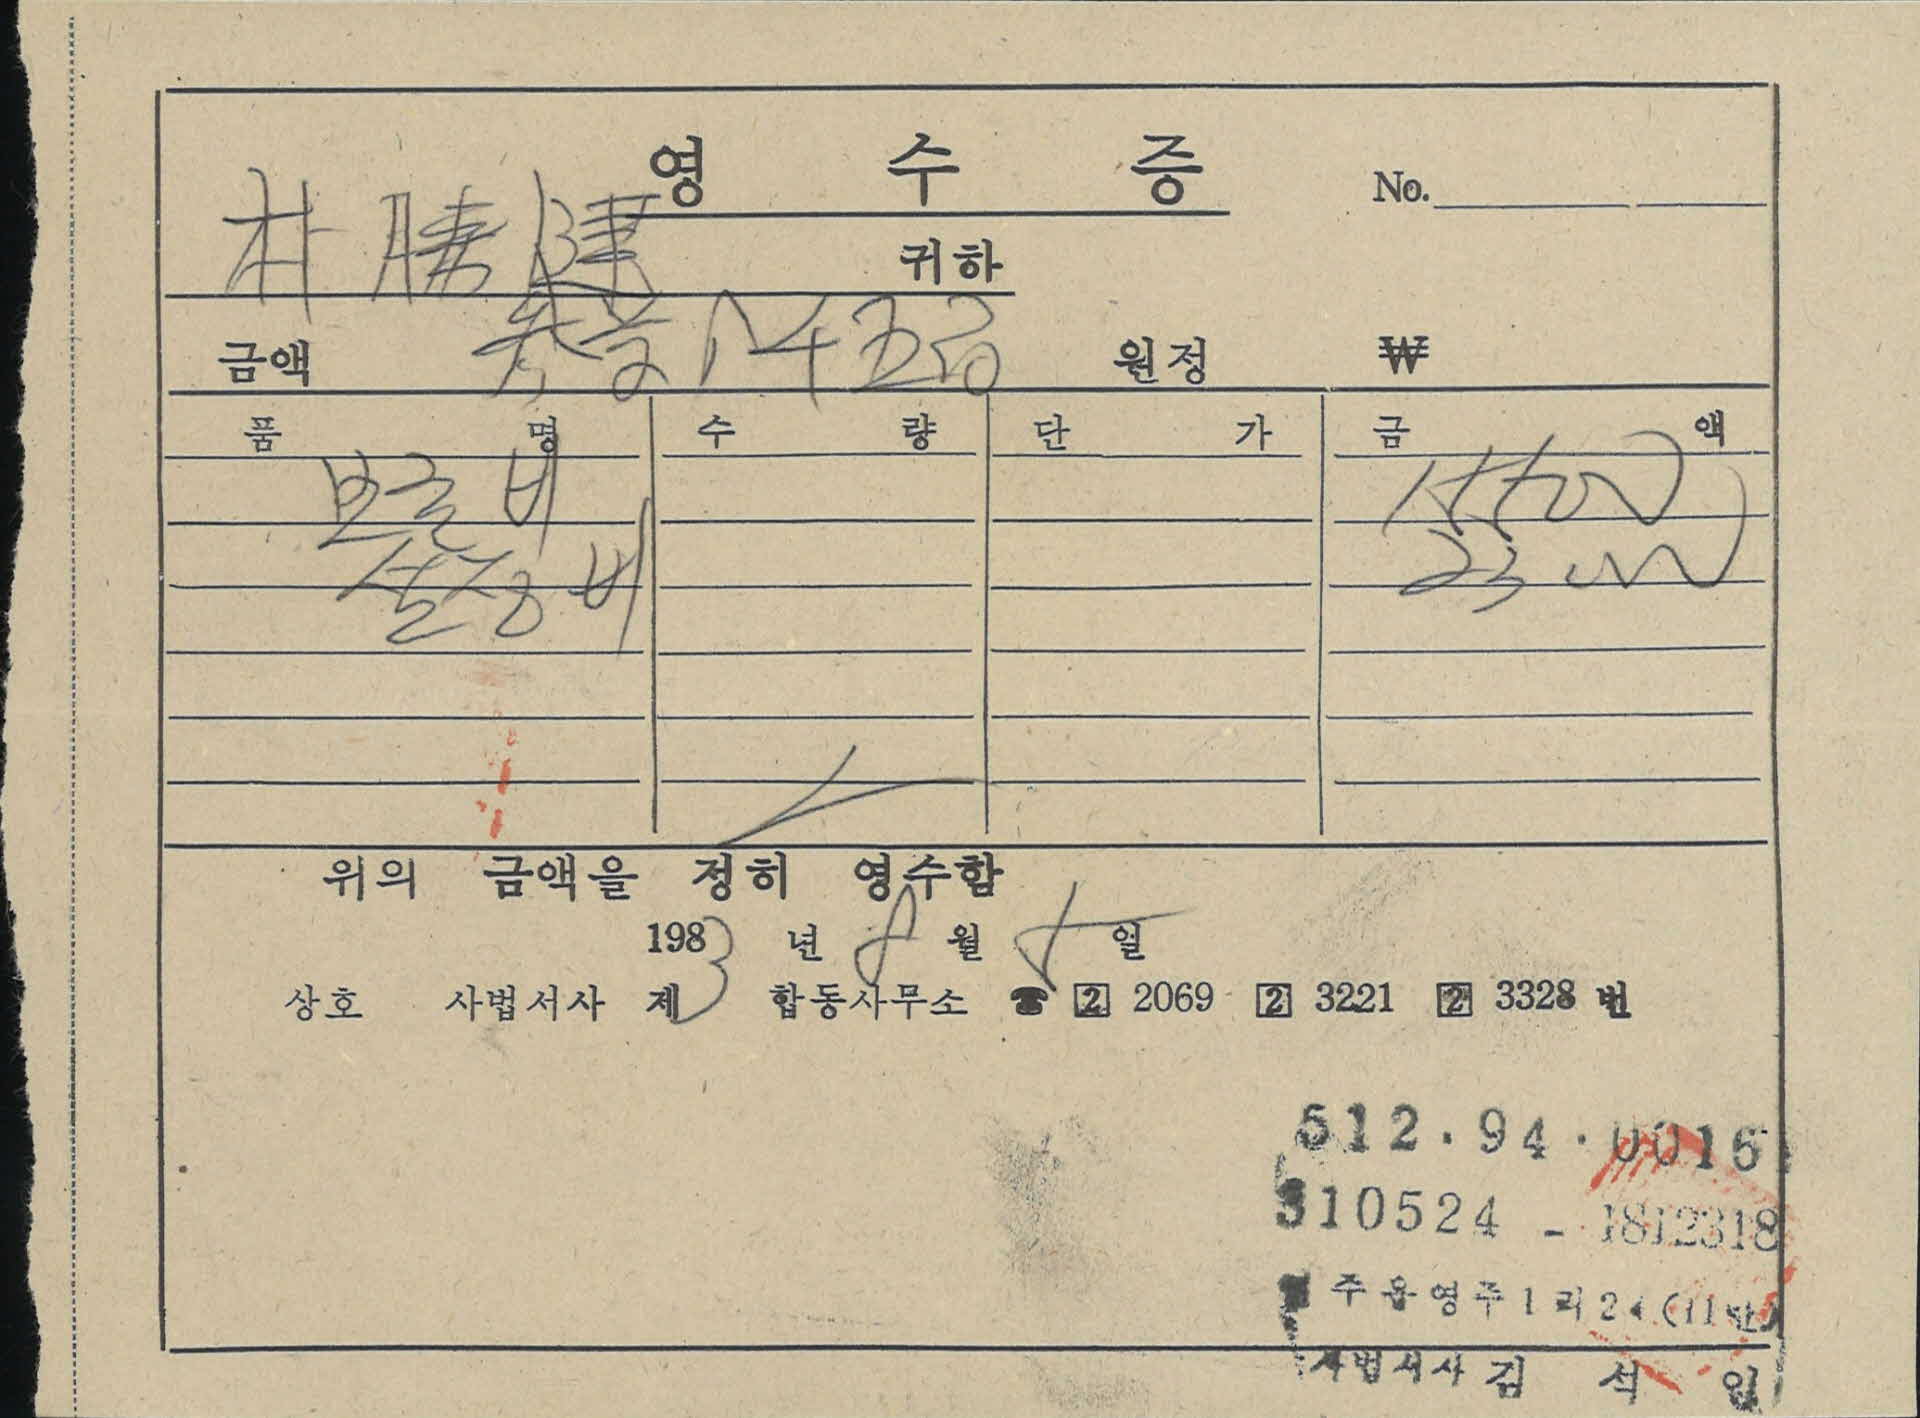 영 수 증
No.
朴勝健 귀하
금액 원정 ₩
품 명 수 량 단 가 금 액
보존비
설정비 23,000
위의 금액을 정히 영수함
1983 년 8 월 5 일
상호 사법서사 제 합동사무소 ☎ 2 2069 2 3221 2 3328 번
512.94.0016
310524 - 1812318
주읍영주1리24(11반)
사법서사 김 석 일